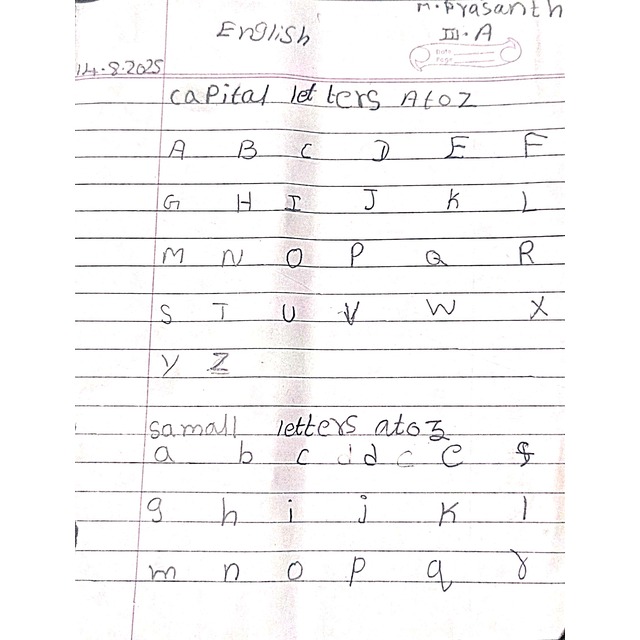 M. Prasanth
English
III. A
Date
Page
14.8.2025
capital letters A to Z
A B C D E F
G H I J K L
M N O P Q R
S T U V W X
y Z
samall letters a to z
a b c d e f
g h i j k l
m n o p q r